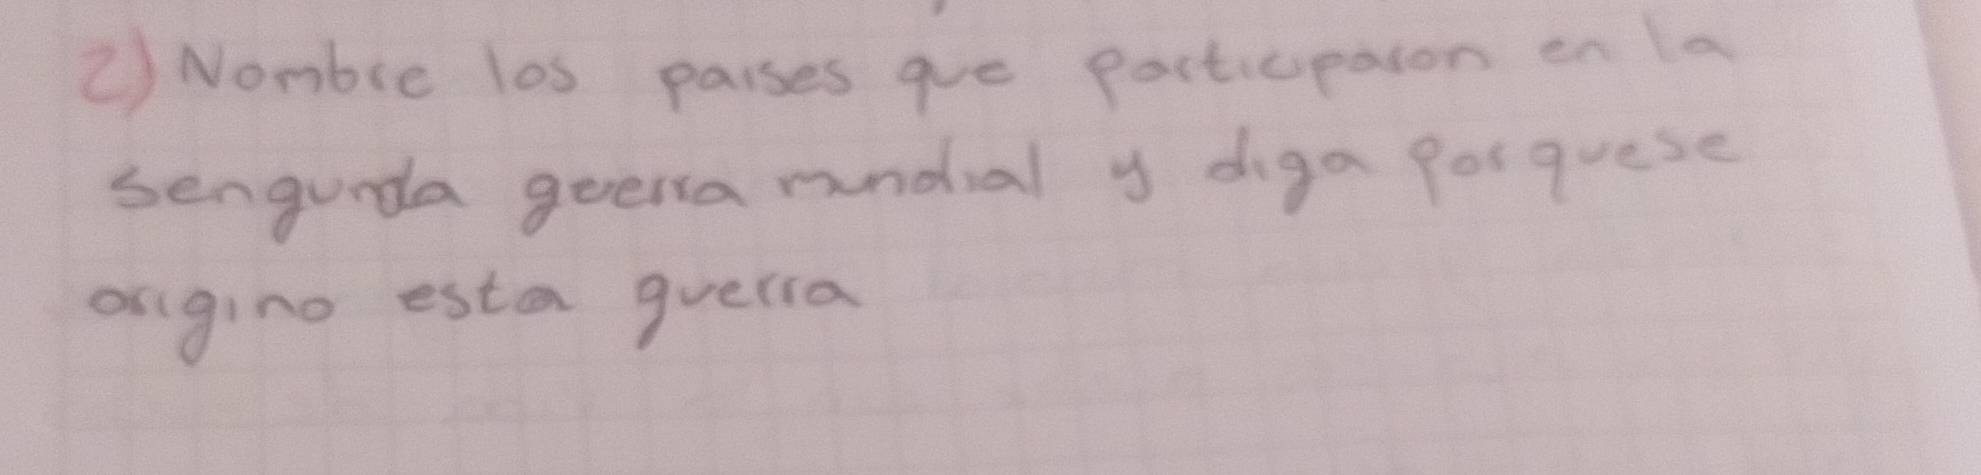 2) Nombre los paises que participaron en la
sengunda guerra mundial y diga porquese
origino esta guerra